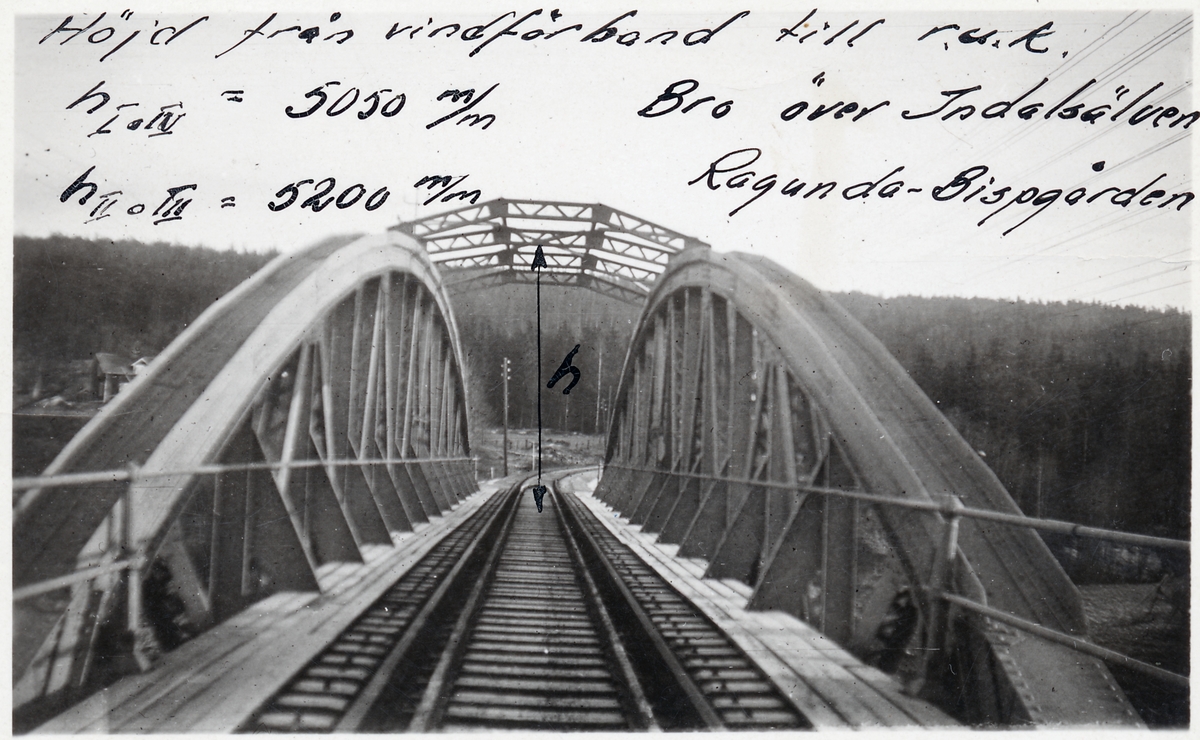 Höjd från vindförband till r.u.k.
h I o IV = 5050 m/m
Bro över Indalsälven
h II o III = 5200 m/m
Ragunda-Bispgården
h